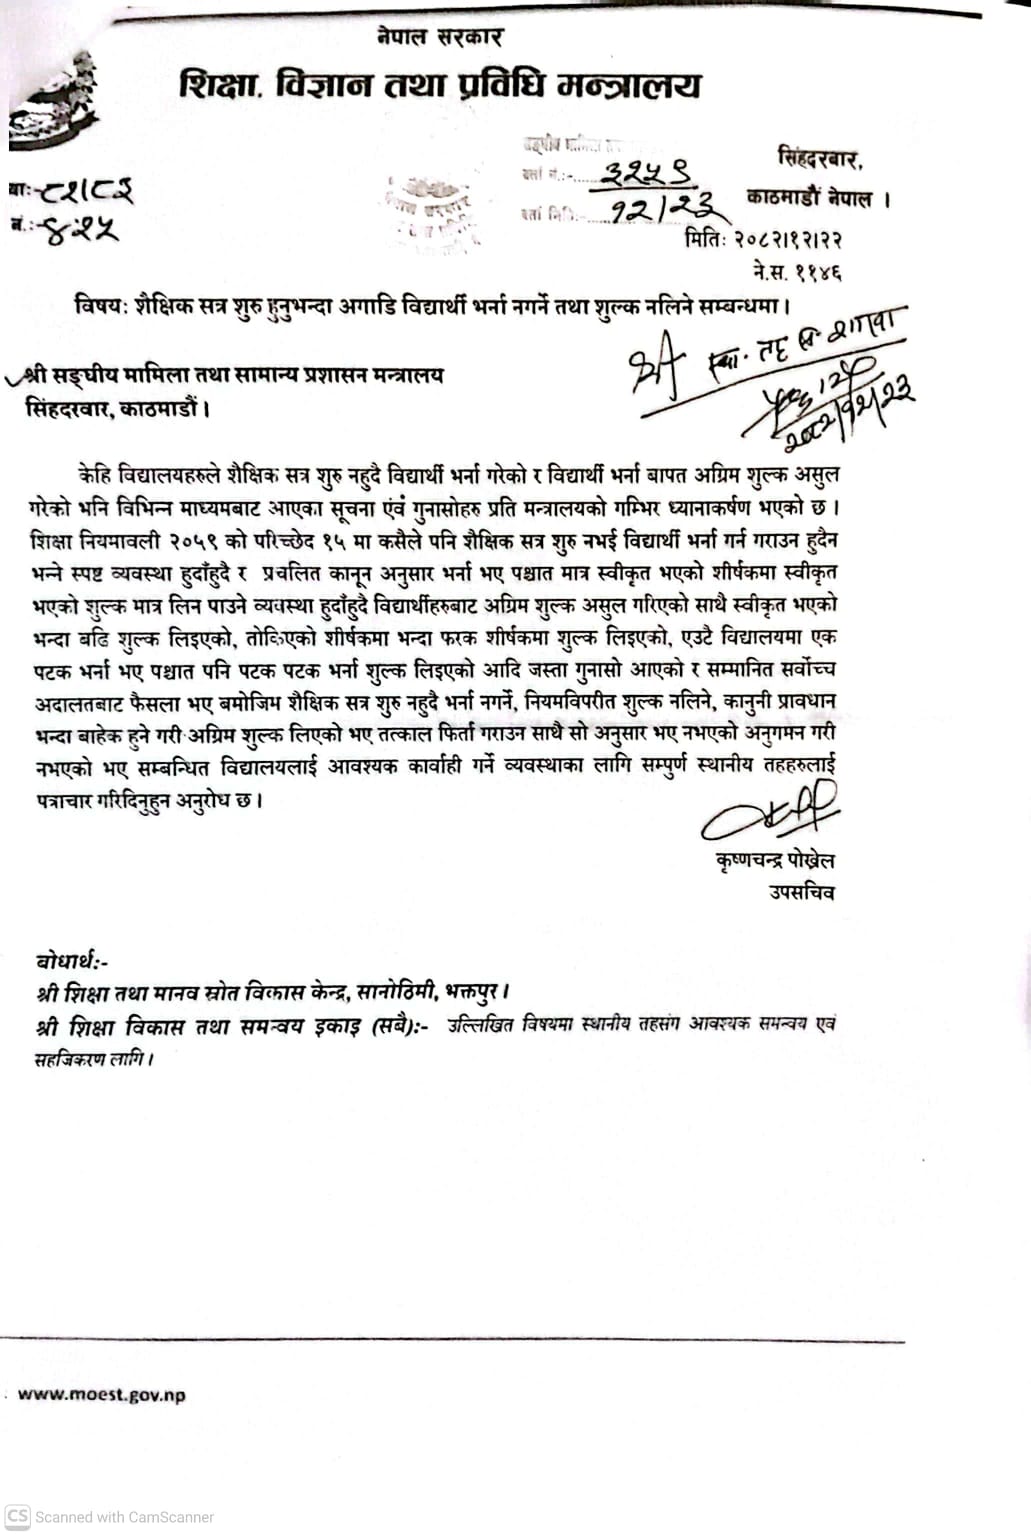 नेपाल सरकार
शिक्षा, विज्ञान तथा प्रविधि मन्त्रालय
सिंहदरबार,
काठमाडौं नेपाल ।
३२५९
१२/२३
८२/८३
४२५
मितिः २०८२/१२/२२
ने.स. ११४६
विषयः शैक्षिक सत्र शुरु हुनुभन्दा अगाडि विद्यार्थी भर्ना नगर्ने तथा शुल्क नलिने सम्बन्धमा ।
श्री सङ्घीय मामिला तथा सामान्य प्रशासन मन्त्रालय
सिंहदरवार, काठमाडौं ।
श्री
२०८२/१२/२३
केहि विद्यालयहरुले शैक्षिक सत्र शुरु नहुदै विद्यार्थी भर्ना गरेको र विद्यार्थी भर्ना बापत अग्रिम शुल्क असुल
गरेको भनि विभिन्न माध्यमबाट आएका सूचना एंवं गुनासोहरु प्रति मन्त्रालयको गम्भिर ध्यानाकर्षण भएको छ ।
शिक्षा नियमावली २०५९ को परिच्छेद १५ मा कसैले पनि शैक्षिक सत्र शुरु नभई विद्यार्थी भर्ना गर्न गराउन हुदैन
भन्ने स्पष्ट व्यवस्था हुदाँहुदै र प्रचलित कानून अनुसार भर्ना भए पश्चात मात्र स्वीकृत भएको शीर्षकमा स्वीकृत
भएको शुल्क मात्र लिन पाउने व्यवस्था हुदाँहुदै विद्यार्थीहरुबाट अग्रिम शुल्क असुल गरिएको साथै स्वीकृत भएको
भन्दा बढि शुल्क लिइएको, तोकिएको शीर्षकमा भन्दा फरक शीर्षकमा शुल्क लिइएको, एउटै विद्यालयमा एक
पटक भर्ना भए पश्चात पनि पटक पटक भर्ना शुल्क लिइएको आदि जस्ता गुनासो आएको र सम्मानित सर्वोच्च
अदालतबाट फैसला भए बमोजिम शैक्षिक सत्र शुरु नहुदै भर्ना नगर्ने, नियमविपरीत शुल्क नलिने, कानुनी प्रावधान
भन्दा बाहेक हुने गरी अग्रिम शुल्क लिएको भए तत्काल फिर्ता गराउन साथै सो अनुसार भए नभएको अनुगमन गरी
नभएको भए सम्बन्धित विद्यालयलाई आवश्यक कार्वाही गर्ने व्यवस्थाका लागि सम्पुर्ण स्थानीय तहहरुलाई
पत्राचार गरिदिनुहुन अनुरोध छ ।
कृष्णचन्द्र पोख्रेल
उपसचिव
बोधार्थः-
श्री शिक्षा तथा मानव स्रोत विकास केन्द्र, सानोठिमी, भक्तपुर ।
श्री शिक्षा विकास तथा समन्वय इकाइ (सबै):- उल्लिखित विषयमा स्थानीय तहसंग आवश्यक समन्वय एवं
सहजिकरण लागि ।
www.moest.gov.np
CS Scanned with CamScanner